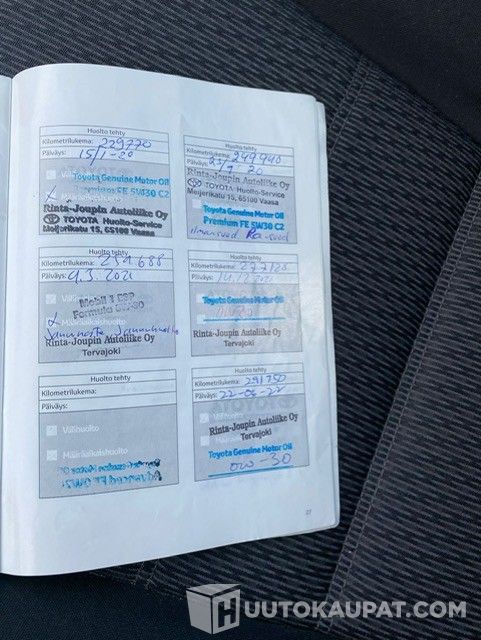 Huolto tehty
Kilometrilukema: 229770
Päiväys: 15/1-20
Toyota Genuine Motor Oil
Premium FE 5W30 C2
Rinta-Joupin Autoliike Oy
TOYOTA Huolto-Service
Meijerikatu 15, 65100 Vaasa
Huolto tehty
Kilometrilukema: 249940
Päiväys: 23/7 20
Rinta-Joupin Autoliike Oy
TOYOTA Huolto-Service
Meijerikatu 15, 65100 Vaasa
Toyota Genuine Motor Oil
Premium FE 5W30 C2
Huolto tehty
Kilometrilukema: 688
Päiväys: 9.3.2021
Mobil 1 ESP
Formula
X Määräaikaishuolto
Rinta-Joupin Autoliike Oy
Tervajoki
Huolto tehty
Kilometrilukema:
Päiväys:
Toyota Genuine Motor Oil
Rinta-Joupin Autoliike Oy
Tervajoki
Huolto tehty
Kilometrilukema:
Päiväys:
Välihuolto
Määräaikaishuolto
Huolto tehty
Kilometrilukema: 291750
Päiväys: 22-06-22
Rinta-Joupin Autoliike Oy
Tervajoki
Toyota Genuine Motor Oil
0W-30
27
HUUTOKAUPAT.COM